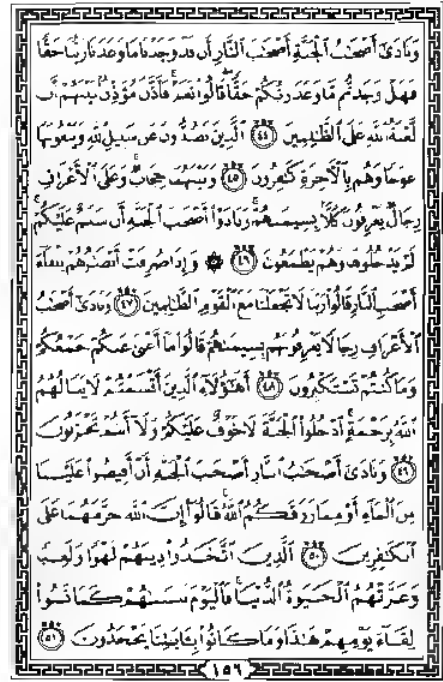 وَنَادَىٰٓ أَصْحَٰبُ ٱلْجَنَّةِ أَصْحَٰبَ ٱلنَّارِ أَن قَدْ وَجَدْنَا مَا وَعَدَنَا رَبُّنَا حَقًّا
فَهَلْ وَجَدتُّم مَّا وَعَدَ رَبُّكُمْ حَقًّا قَالُوا۟ نَعَمْ فَأَذَّنَ مُؤَذِّنٌۢ بَيْنَهُمْ أَن
لَّعْنَةُ ٱللَّهِ عَلَى ٱلظَّٰلِمِينَ ٤٤ ٱلَّذِينَ يَصُدُّونَ عَن سَبِيلِ ٱللَّهِ وَيَبْغُونَهَا
عِوَجًا وَهُم بِٱلْءَاخِرَةِ كَٰفِرُونَ ٤٥ وَبَيْنَهُمَا حِجَابٌ وَعَلَى ٱلْأَعْرَافِ
رِجَالٌ يَعْرِفُونَ كُلًّۢا بِسِيمَىٰهُمْ وَنَادَوْا۟ أَصْحَٰبَ ٱلْجَنَّةِ أَن سَلَٰمٌ عَلَيْكُمْ
لَمْ يَدْخُلُوهَا وَهُمْ يَطْمَعُونَ ٤٦ ۞ وَإِذَا صُرِفَتْ أَبْصَٰرُهُمْ تِلْقَآءَ
أَصْحَٰبِ ٱلنَّارِ قَالُوا۟ رَبَّنَا لَا تَجْعَلْنَا مَعَ ٱلْقَوْمِ ٱلظَّٰلِمِينَ ٤٧ وَنَادَىٰٓ أَصْحَٰبُ
ٱلْأَعْرَافِ رِجَالًا يَعْرِفُونَهُم بِسِيمَىٰهُمْ قَالُوا۟ مَآ أَغْنَىٰ عَنكُمْ جَمْعُكُمْ
وَمَا كُنتُمْ تَسْتَكْبِرُونَ ٤٨ أَهَٰٓؤُلَآءِ ٱلَّذِينَ أَقْسَمْتُمْ لَا يَنَالُهُمُ
ٱللَّهُ بِرَحْمَةٍ ٱدْخُلُوا۟ ٱلْجَنَّةَ لَا خَوْفٌ عَلَيْكُمْ وَلَآ أَنتُمْ تَحْزَنُونَ
٤٩ وَنَادَىٰٓ أَصْحَٰبُ ٱلنَّارِ أَصْحَٰبَ ٱلْجَنَّةِ أَنْ أَفِيضُوا۟ عَلَيْنَا
مِنَ ٱلْمَآءِ أَوْ مِمَّا رَزَقَكُمُ ٱللَّهُ قَالُوٓا۟ إِنَّ ٱللَّهَ حَرَّمَهُمَا عَلَى
ٱلْكَٰفِرِينَ ٥٠ ٱلَّذِينَ ٱتَّخَذُوا۟ دِينَهُمْ لَهْوًا وَلَعِبًا
وَغَرَّتْهُمُ ٱلْحَيَوٰةُ ٱلدُّنْيَا فَٱلْيَوْمَ نَنسَىٰهُمْ كَمَا نَسُوا۟
لِقَآءَ يَوْمِهِمْ هَٰذَا وَمَا كَانُوا۟ بِـَٔايَٰتِنَا يَجْحَدُونَ ٥١
١٥٦